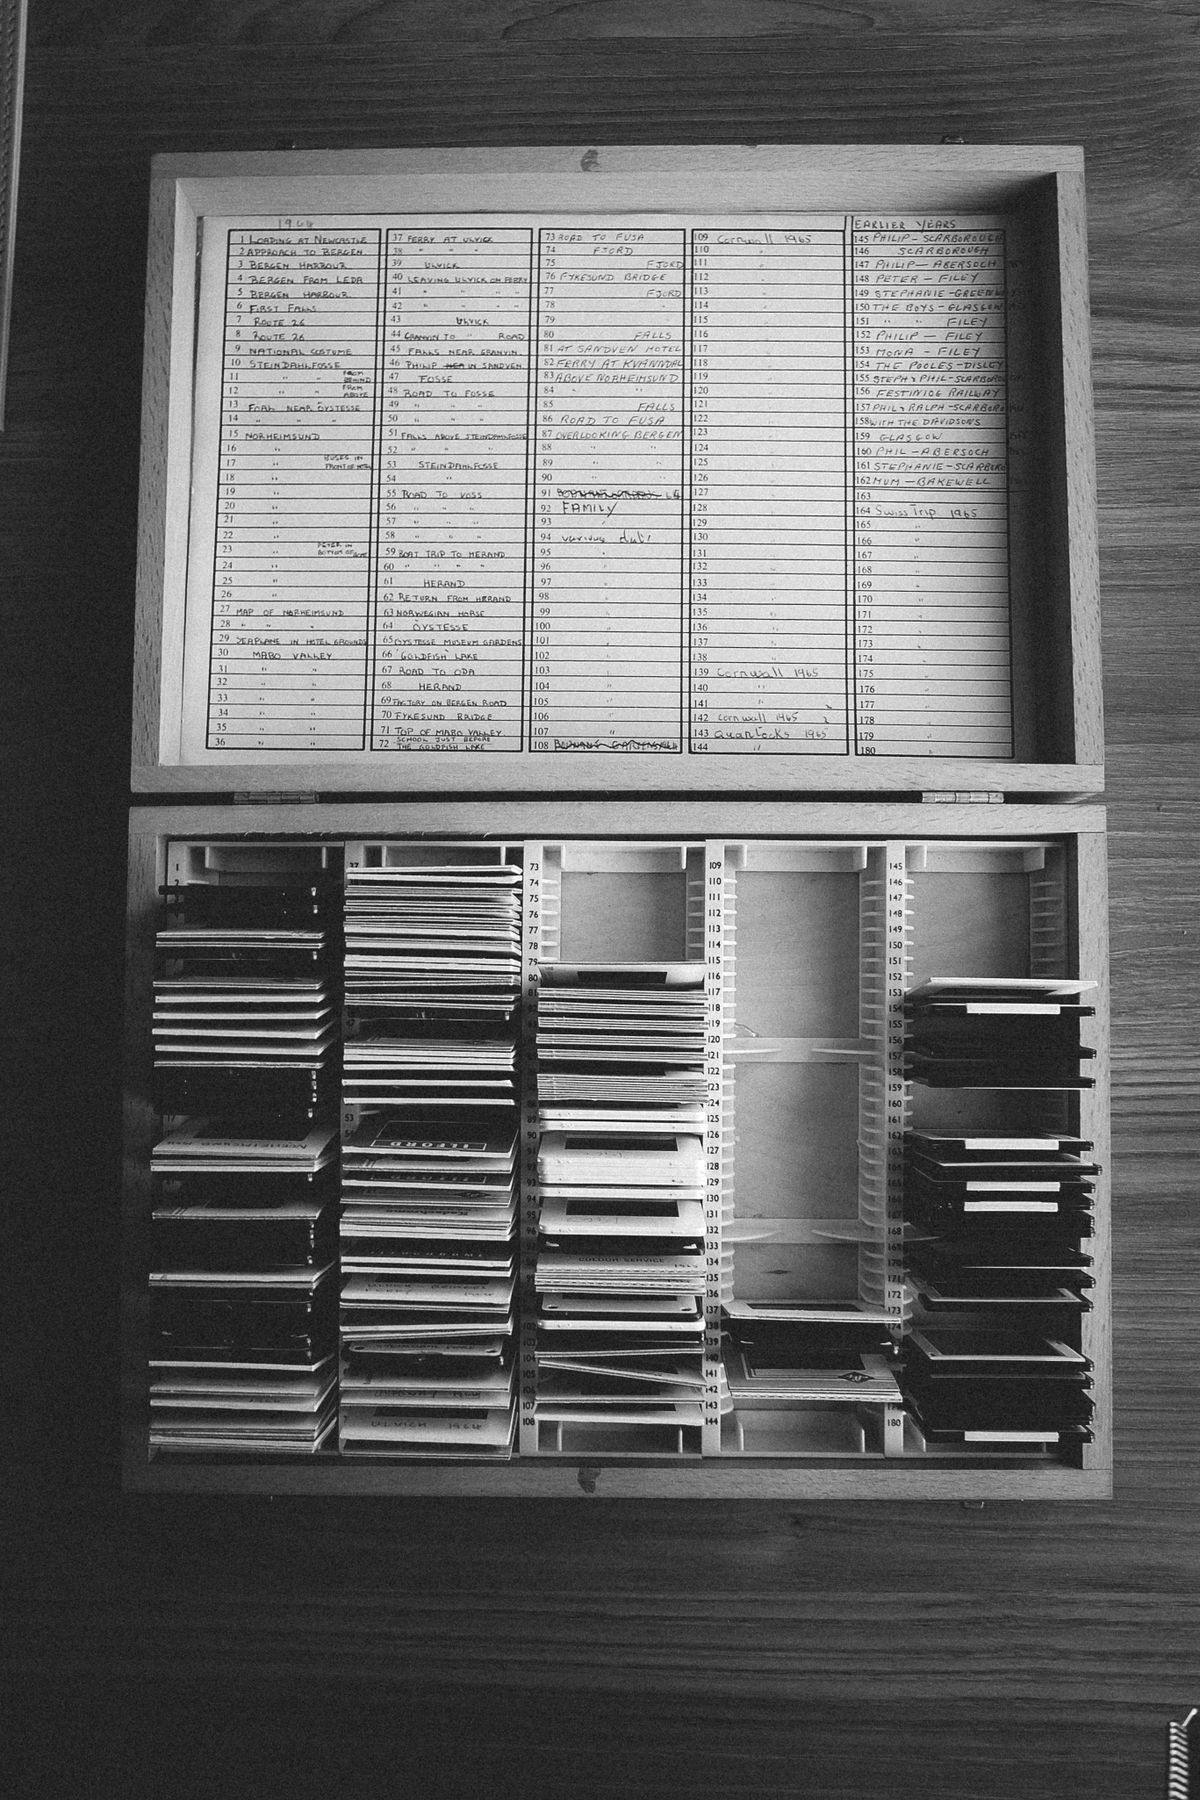 1964
1 LOADING AT NEWCASTLE
2 APPROACH TO BERGEN
3 BERGEN HARBOUR
4 BERGEN FROM LEDA
5 BERGEN HARBOUR.
6 FIRST FALLS
7 ROUTE 26
8 ROUTE 26
9 NATIONAL COSTUME
10 STEINDAHLFOSSE
11 " " FROM BEHIND
12 " " FROM ABOVE
13 FOAL NEAR OYSTESSE
14 " " "
15 NORHEIMSUND
16 "
17 " BUSES IN FRONT OF HOTEL
18 "
19 "
20 "
21 "
22 "
23 " PETER IN BOTTOM OF
24 "
25 "
26 "
27 MAP OF NORHEIMSUND
28 " "
29 SEAPLANE IN HOTEL GROUNDS
30 MABO VALLEY
31 " "
32 " "
33 " "
34 " "
35 " "
36 " "
37 FERRY AT ULVICK
38 " " "
39 ULVICK
40 LEAVING ULVICK ON FERRY
41 " " " "
42 " " " "
43 ULVICK
44 GRANVIN TO " ROAD
45 FALLS NEAR GRANVIN.
46 PHILIP IN SANDVEN
47 FOSSE
48 ROAD TO FOSSE
49 " " "
50 " " "
51 FALLS ABOVE STEINDAHLFOSSE
52 " " "
53 STEINDAHLFOSSE
54 "
55 ROAD TO VOSS
56 " " "
57 " " "
58 " " "
59 BOAT TRIP TO HERAND
60 " " " "
61 HERAND
62 RETURN FROM HERAND
63 NORWEGIAN HORSE
64 OYSTESSE
65 OYSTESSE MUSEUM GARDENS
66 'GOLDFISH' LAKE
67 ROAD TO ODA
68 HERAND
69 FACTORY ON BERGEN ROAD
70 FYKESUND BRIDGE
71 TOP OF MABO VALLEY.
72 SCHOOL JUST BEFORE THE GOLDFISH LAKE
73 ROAD TO FUSA
74 FJORD
75 FJORD
76 FYKESUND BRIDGE
77 FJORD
78 "
79 "
80 FALLS
81 AT SANDVEN HOTEL
82 FERRY AT KVANNDAL
83 ABOVE NORHEIMSUND
84 "
85 FALLS
86 ROAD TO FUSA
87 OVERLOOKING BERGEN
88 " "
89 " "
90 " "
91 64
92 FAMILY
93 "
94 various
95 "
96 "
97 "
98 "
99 "
100 "
101 "
102 "
103 "
104 "
105 "
106 "
107 "
108
109 Cornwall 1965
110 "
111 "
112 "
113 "
114 "
115 "
116 "
117 "
118 "
119 "
120 "
121 "
122 "
123 "
124 "
125 "
126 "
127 "
128 "
129 "
130 "
131 "
132 "
133 "
134 "
135 "
136 "
137 "
138 "
139 Cornwall 1965
140 "
141 "
142 Cornwall 1965
143 Quantocks 1965
144 "
EARLIER YEARS
145 PHILIP - SCARBOROUGH
146 SCARBOROUGH
147 PHILIP - ABERSOCH
148 PETER - FILEY
149 STEPHANIE -
150 THE BOYS - GLASGOW
151 " " FILEY
152 PHILIP - FILEY
153 MONA - FILEY
154 THE POOLES - DISLEY
155 STEPH & PHIL -
156 FESTINIOG RAILWAY
157 PHIL & RALPH -
158 WITH THE DAVIDSONS
159 GLASGOW
160 PHIL - ABERSOCH
161 STEPHANIE -
162 MUM - BAKEWELL
163
164 Swiss Trip 1965
165 "
166 "
167 "
168 "
169 "
170 "
171 "
172 "
173 "
174 "
175 "
176 "
177 "
178 "
179 "
180 "
1
2
37
73
74
75
76
77
78
79
80
109
110
111
112
113
114
115
116
117
118
119
120
121
122
123
124
125
126
127
128
129
130
131
132
133
134
135
136
137
138
139
140
141
142
143
144
145
146
147
148
149
150
151
152
153
154
155
156
157
158
159
160
168
172
173
180
53
ILFORD
COLOUR SERVICE
105
107
108